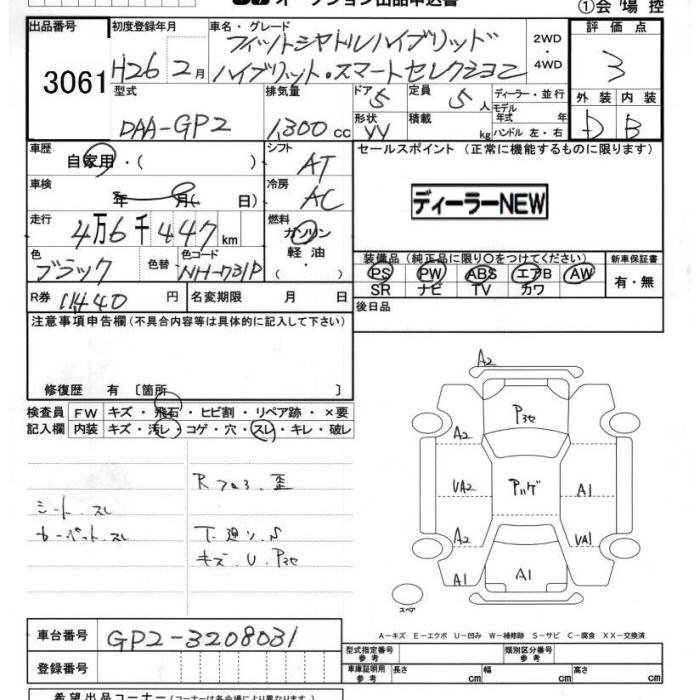 オークション出品申込書
①会場控
出品番号
3061
初度登録年月
H26 2月
車名・グレード
フィットシャトルハイブリッド
ハイブリット・スマートセレクション
2WD・4WD
評価点
3
外装 内装
D B
型式
DAA-GP2
排気量
1,300 cc
ドア 5
形状 VV
定員 5人
積載 kg
ディーラー・並行
モデル年式 年
ハンドル 左・右
車歴
自家用・( )
シフト
AT
車検
年 月( 日)
冷房
AC
走行
4万6千447km
燃料
ガソリン
軽油
・( )
色
ブラック
色替
色コード
NH-731P
R券 11,440円
名変期限 月 日
セールスポイント (正常に機能するものに限ります)
ディーラーNEW
装備品 (純正品に限り○をつけてください)
PS PW ABS エアB AW
SR ナビ TV カワ
新車保証書
有・無
後日品
注意事項申告欄(不具合内容等は具体的に記入して下さい)
修復歴 有 〔箇所 〕
検査員記入欄
FW キズ・飛石・ヒビ割・リペア跡・×要
内装 キズ・汚レ・コゲ・穴・スレ・キレ・破レ
シート、スレ
カーペット、スレ
R フロ3、歪
下廻り、S
キズ、U、Pヨセ
A2
Pヨセ
A2
VA2
Pハゲ
A1
A2
VA1
A1
A1
スペア
A-キズ E-エクボ U-凹み W-補修跡 S-サビ C-腐食 XX-交換済
車台番号
GP2-3208031
登録番号
型式指定番号 参考
類別区分番号 参考
車庫証明用 参考
長さ cm
幅 cm
高さ cm
希望出品コーナー(コーナーは各会場により異なります)